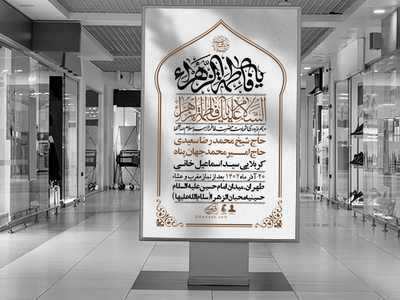 یا فاطمة الزهراء
السلام علیک یا فاطمة الزهراء
حاج شیخ محمد رضا سعیدی
حاج امیر محمد جهان پناه
کربلایی سید اسماعیل خانی
۲۰ آذر ماه ۱۴۰۲ بعد از نماز مغرب و عشاء
طهران، میدان امام حسین علیه السلام
حسینیه محبان الزهرا (سلام الله علیها)